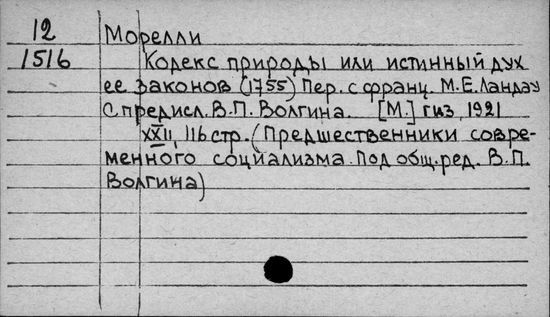 12 Морелли
1516 Кодекс природы или истинный дух
ее законов (1755) Пер. с франц. М.Е.Ландау
С предисл. В.П. Волгина. [М.] гиз, 1921
XXII, 116 стр. (Предшественники совре-
менного социализма. Под общ. ред. В.П.
Волгина)